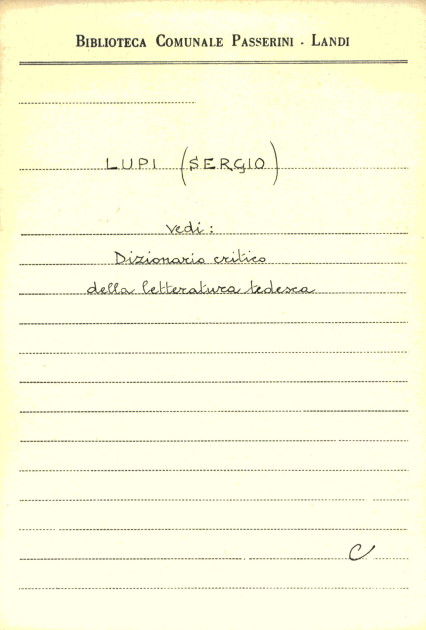 BIBLIOTECA COMUNALE PASSERINI - LANDI
LUPI (SERGIO)
Vedi:
Dizionario critico
della letteratura tedesca
C